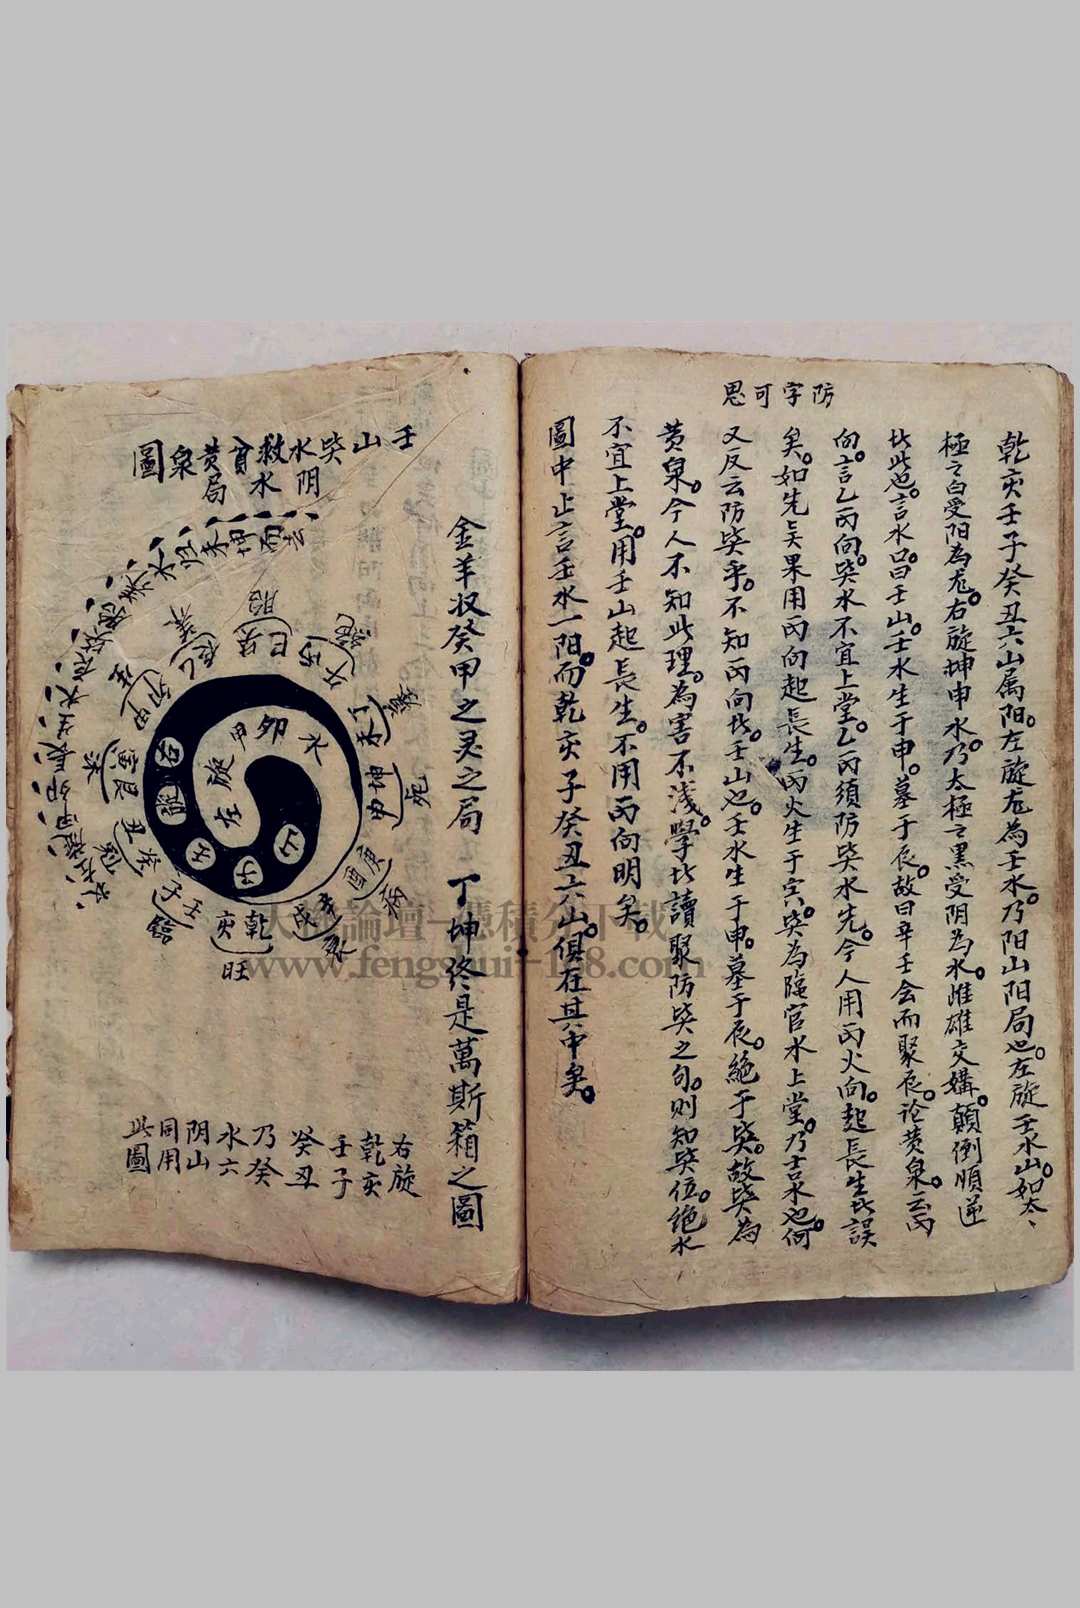 防字可思
乾亥壬子癸丑六山属阳。左旋龙為壬水。乃阳山阳局也。左旋壬水山。如太、
極之白受阳為龙。右旋坤申水。乃太極之黑受阴為水。雌雄交媾。顛倒順逆
比此也。言水口。曰壬山。壬水生于申。墓于辰。故曰辛壬会而聚辰。论黄泉。云丙
向。言乙丙向。巽水不宜上堂。乙丙須防巽水先。今人用丙火向。起長生。此誤
矣。如先天果用丙向起長生。丙火生于寅。巽為臨官水上堂。乃吉水也。何
又反云防巽乎。不知丙向者。壬山也。壬水生于申。墓于辰。絕于巽。故巽為
黄泉。今人不知此理。為害不浅。學者讀聚防巽之句。則知巽位絕水
不宜上堂。用壬山起長生。不用丙向明矣。
圖中止言壬水一阳。而乾亥子癸丑六山。俱在其中矣。
金羊收癸甲之灵之局 丁坤终是萬斯箱之圖
壬山巽水救貧黄泉圖
阴水局
左旋
甲卯水
壬
子
山
乾亥
旺
壬子
癸丑
艮寅
甲卯
巽巳
胎
養
丙午
絕
丁未
墓
坤申
死
庚酉
病
辛戌
衰
右旋
乾亥
壬子
癸丑
乃癸
水六
阴山
同用
此圖
大極論壇-憑積分下载
www.fengshui-168.com